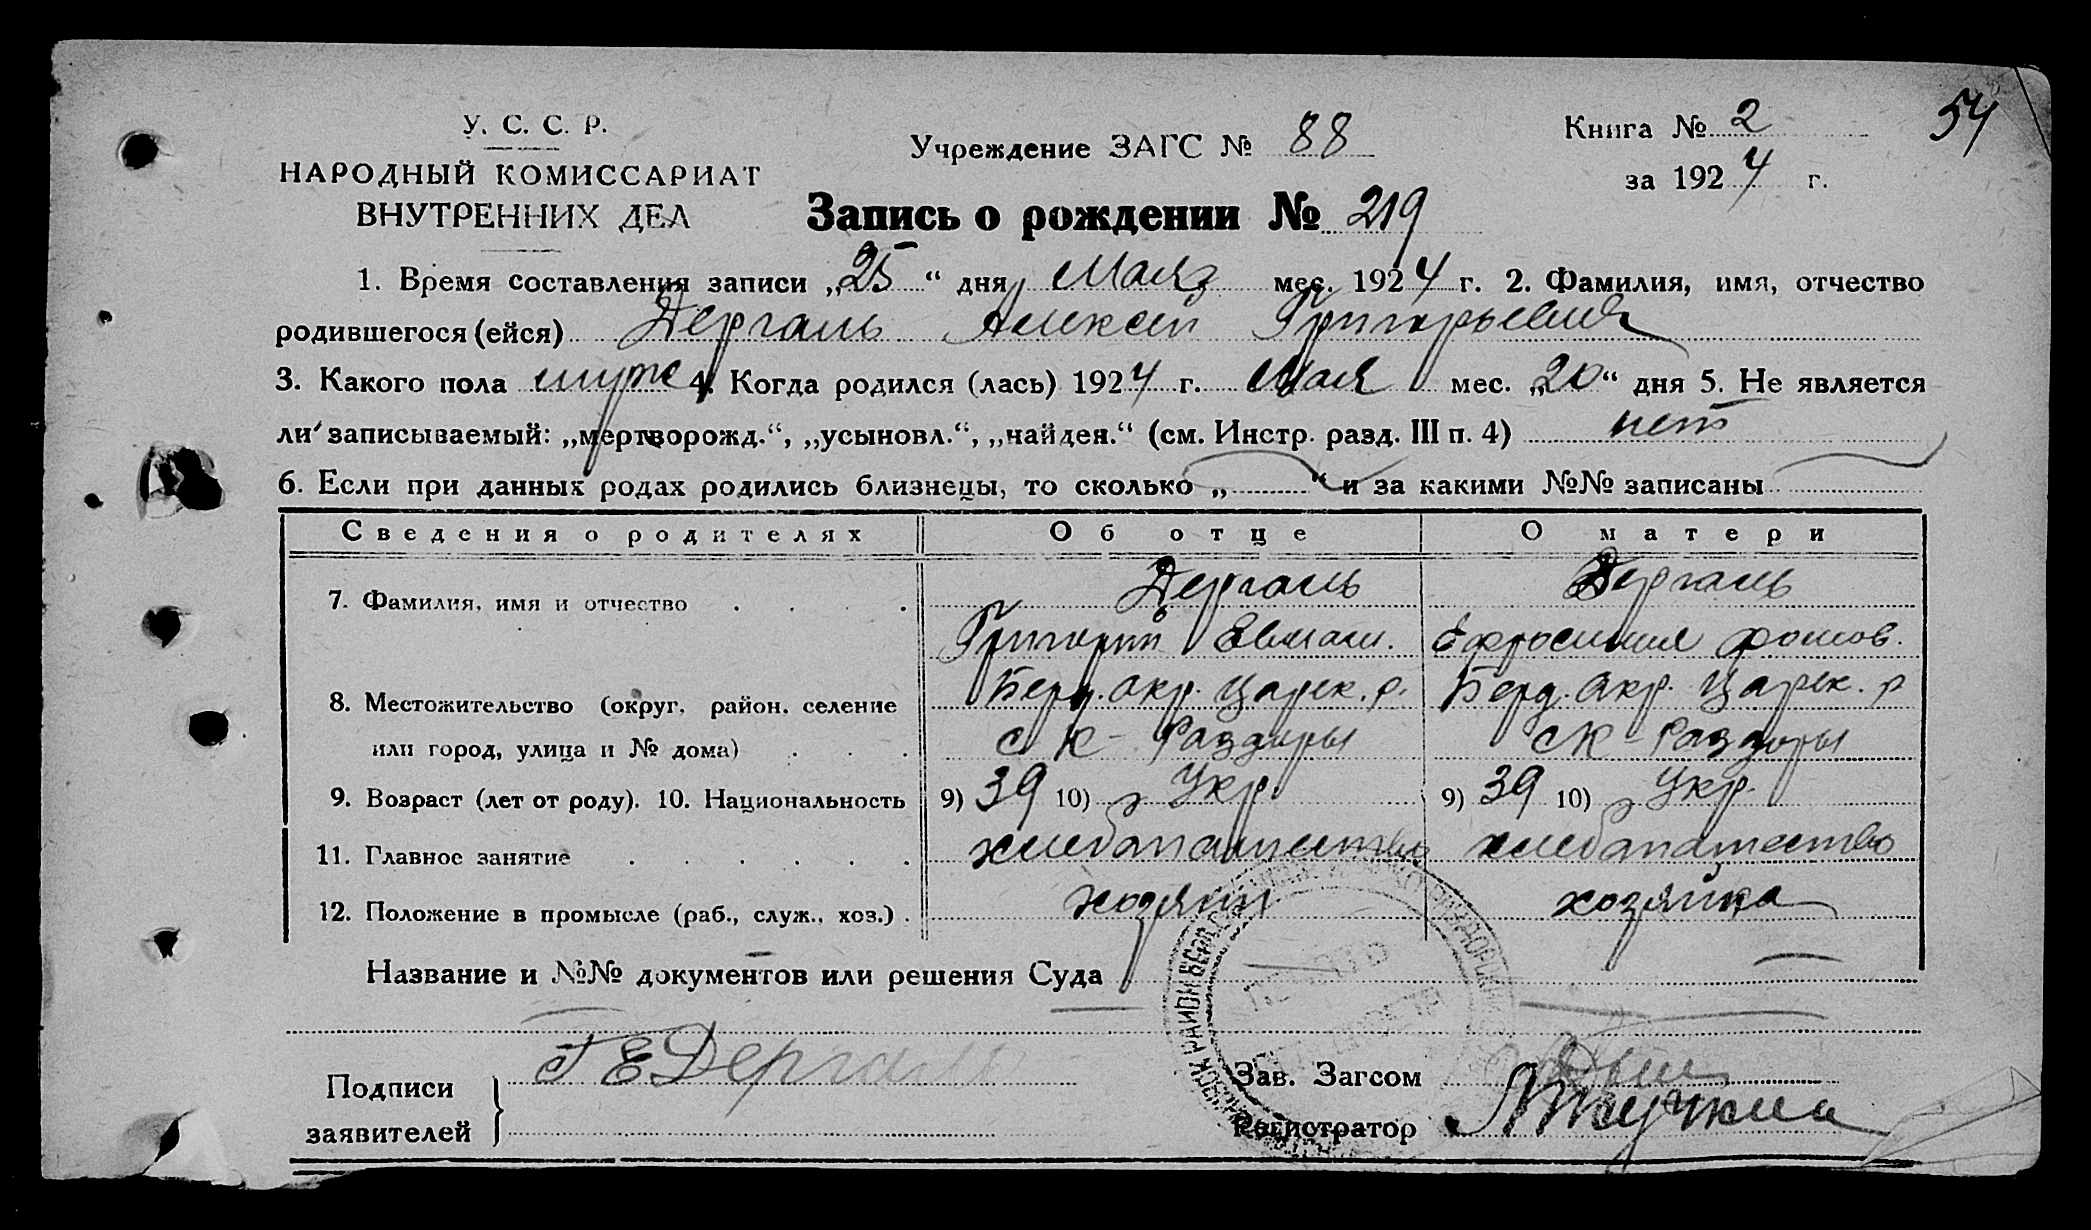 54
У. С. С. Р.
НАРОДНЫЙ КОМИССАРИАТ
ВНУТРЕННИХ ДЕЛ
Учреждение ЗАГС № 88
Книга № 2
за 1924 г.
Запись о рождении № 219
1. Время составления записи „25“ дня Мая мес. 1924 г. 2. Фамилия, имя, отчество
родившегося (ейся) Дергаль Алексей Григорьевич
3. Какого пола муже 4. Когда родился (лась) 1924 г. Мая мес. „20“ дня 5. Не является
ли записываемый: „мертворожд.“, „усыновл.“, „найден.“ (см. Инстр. разд. III п. 4) нет
6. Если при данных родах родились близнецы, то сколько „ “ и за какими №№ записаны
Сведения о родителях Об отце О матери
7. Фамилия, имя и отчество Дергаль Дергаль
Григорий Ефросиния
8. Местожительство (округ, район, селение Берд. окр. Царек. р. Берд. окр. Царек. р
или город, улица и № дома) с К-Раздоры с К-Раздоры
9. Возраст (лет от роду). 10. Национальность 9) 39 10) Укр. 9) 39 10) Укр.
11. Главное занятие хлебопашество хлебопашество
12. Положение в промысле (раб., служ., хоз.) хозяин хозяйка
Название и №№ документов или решения Суда
Подписи заявителей Г Е Дергаль
Зав. Загсом
Регистратор